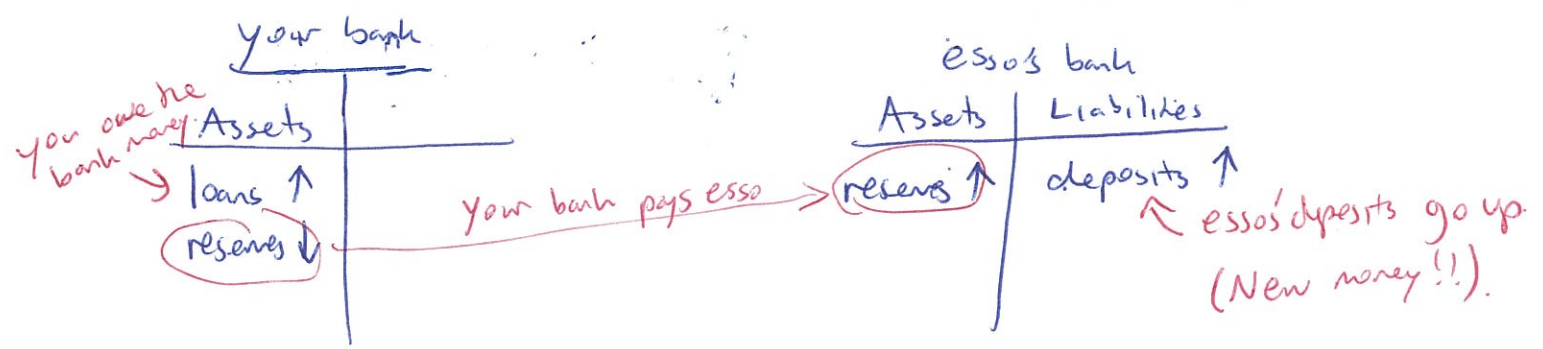 your bank
you owe the
bank money.
Assets
loans ↑
reserves ↓
your bank pays esso
esso's bank
Assets
Liabilities
reserves ↑
deposits ↑
esso's deposits go up.
(New money!!).